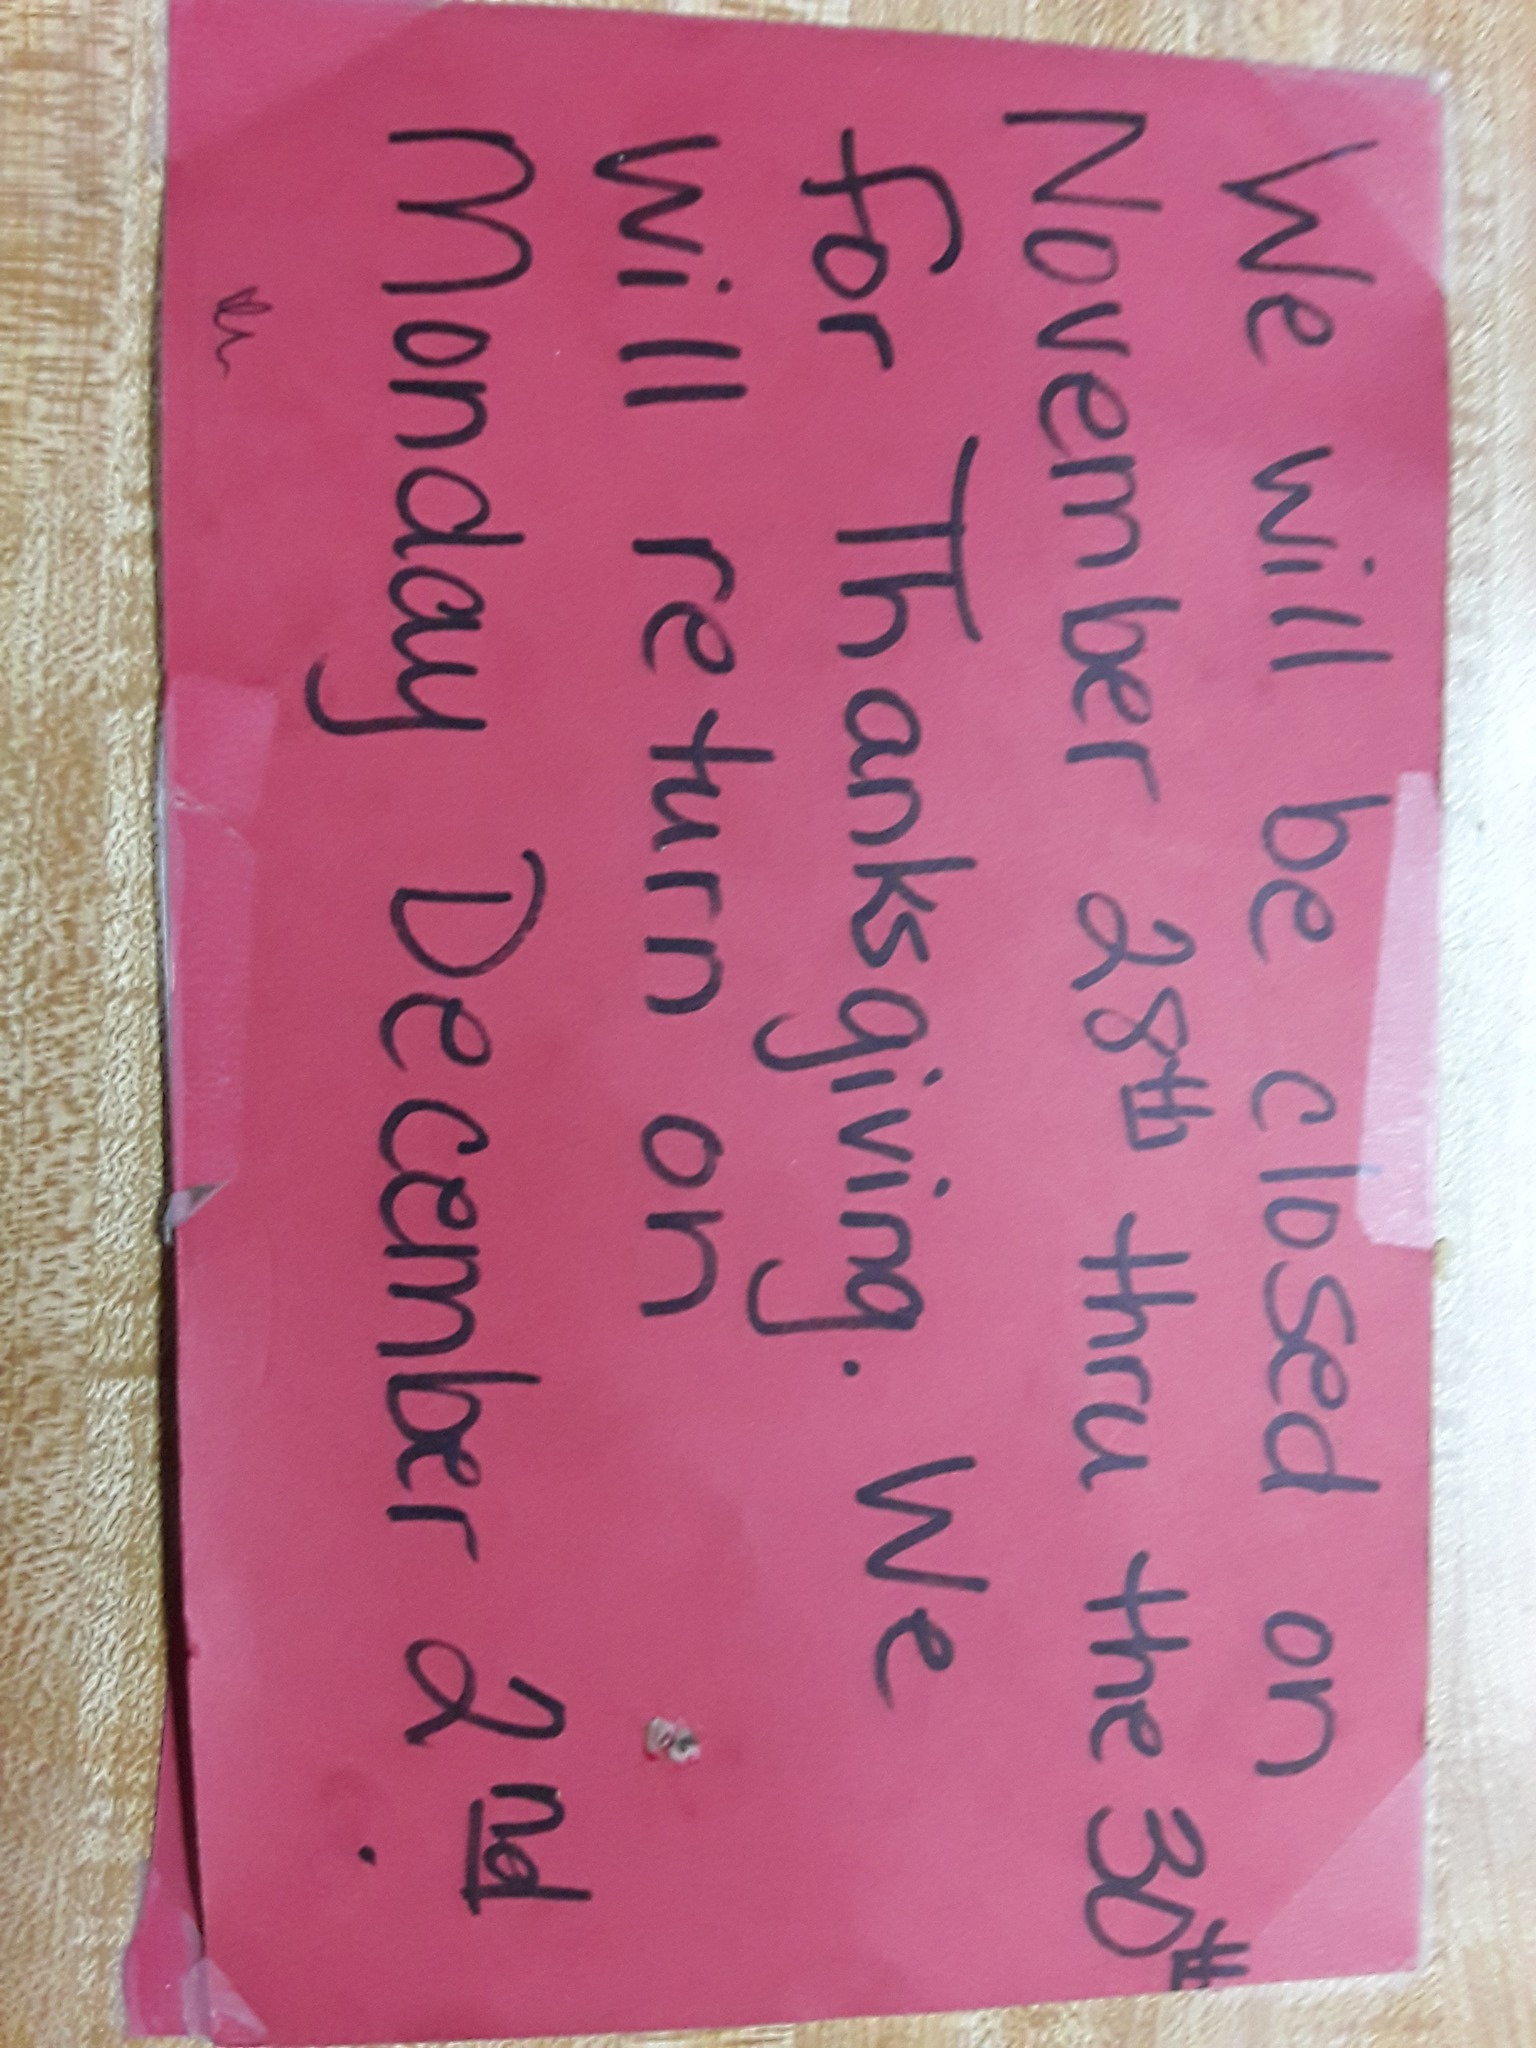 We will be closed on
November 28th thru the 30th
for Thanksgiving. We
will return on
Monday December 2nd.